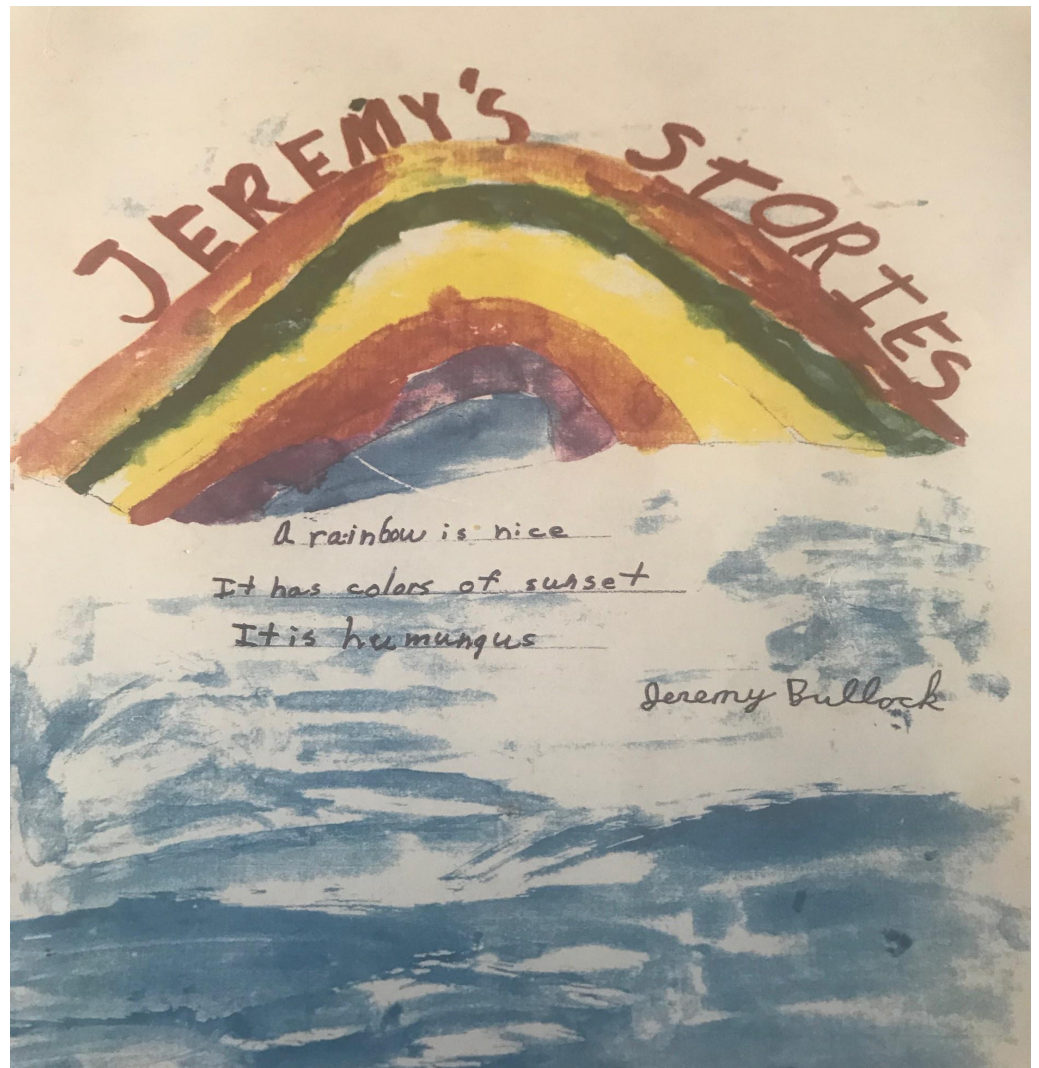 JEREMY'S STORIES
A rainbow is nice
It has colors of sunset
It is humungus
Jeremy Bullock